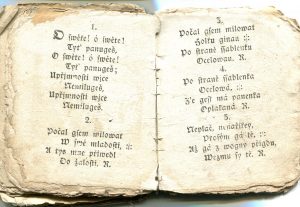 1.
O swěte! ó swěte!
Tyť panugeš,
O swěte! ó swěte!
Tyť panugeš;
Upřjmnosti wjce
Nemilugeš,
Upřjmnosti wjce
Nemilugeš.
2.
Počal gsem milowat
W swé mladosti, :,:
A tys mne přiwedl
Do žalosti. R.
3.
Počal gsem milowat
Holku ginau :,:
Po straně ssablenka
Ocelowau. R.
4.
Po straně ssablenka
Ocelowá, :,:
Že gest má panenka
Oplakaná. R.
5.
Neplač, nenařjkey,
Prosým gá tě, :,:
Až gá z wogny přigdu,
Wezmu sy tě. R.